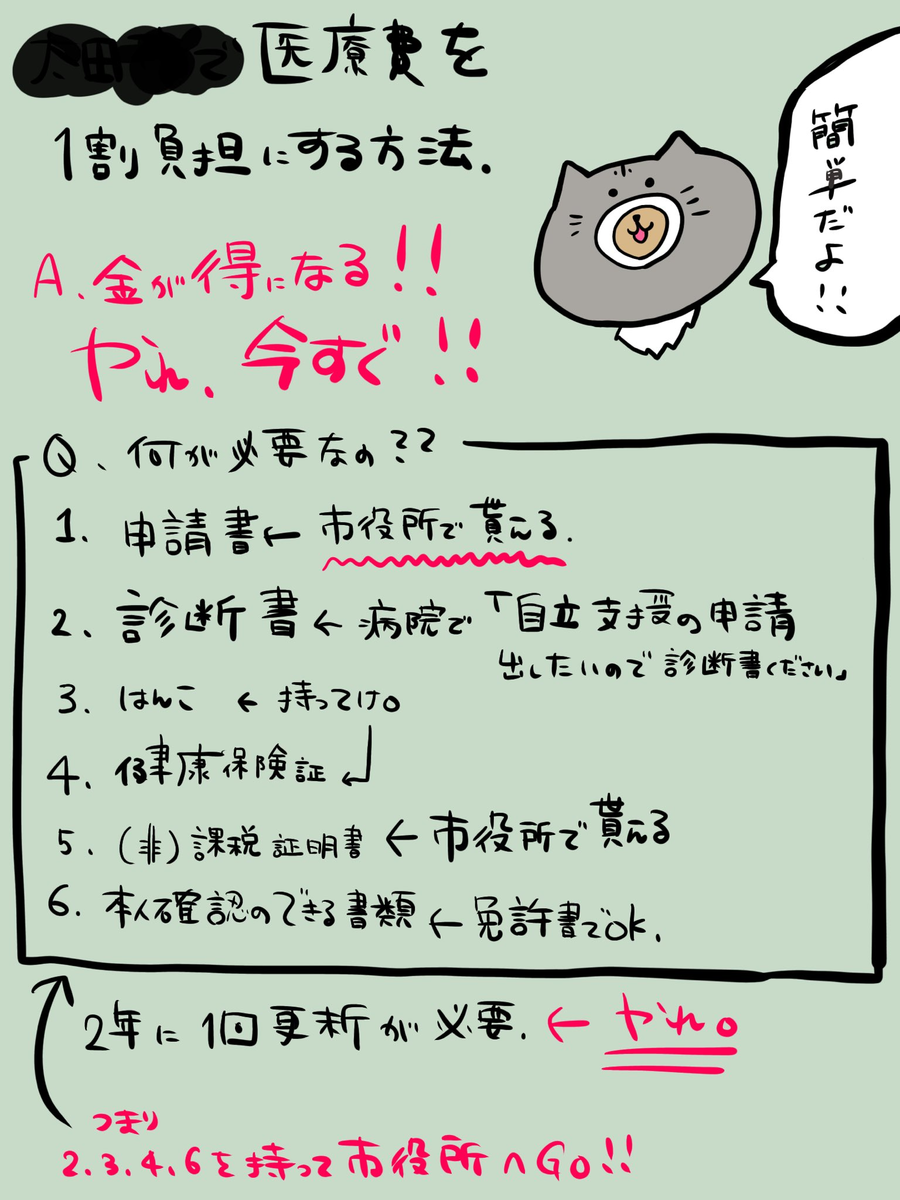 で医療費を
1割負担にする方法.
簡単だよ!!
A、金が得になる!!
やれ、今すぐ!!
Q、何が必要なの??
1、申請書←市役所で貰える.
2、診断書←病院で「自立支援の申請
出したいので診断書ください」
3.はんこ ←持ってけ。
4、健康保険証
5.(非)課税証明書←市役所で貰える
6.本人確認のできる書類←免許書でOK.
2年に1回更新が必要.←やれ。
つまり
2.3.4.6を持って市役所へGO!!